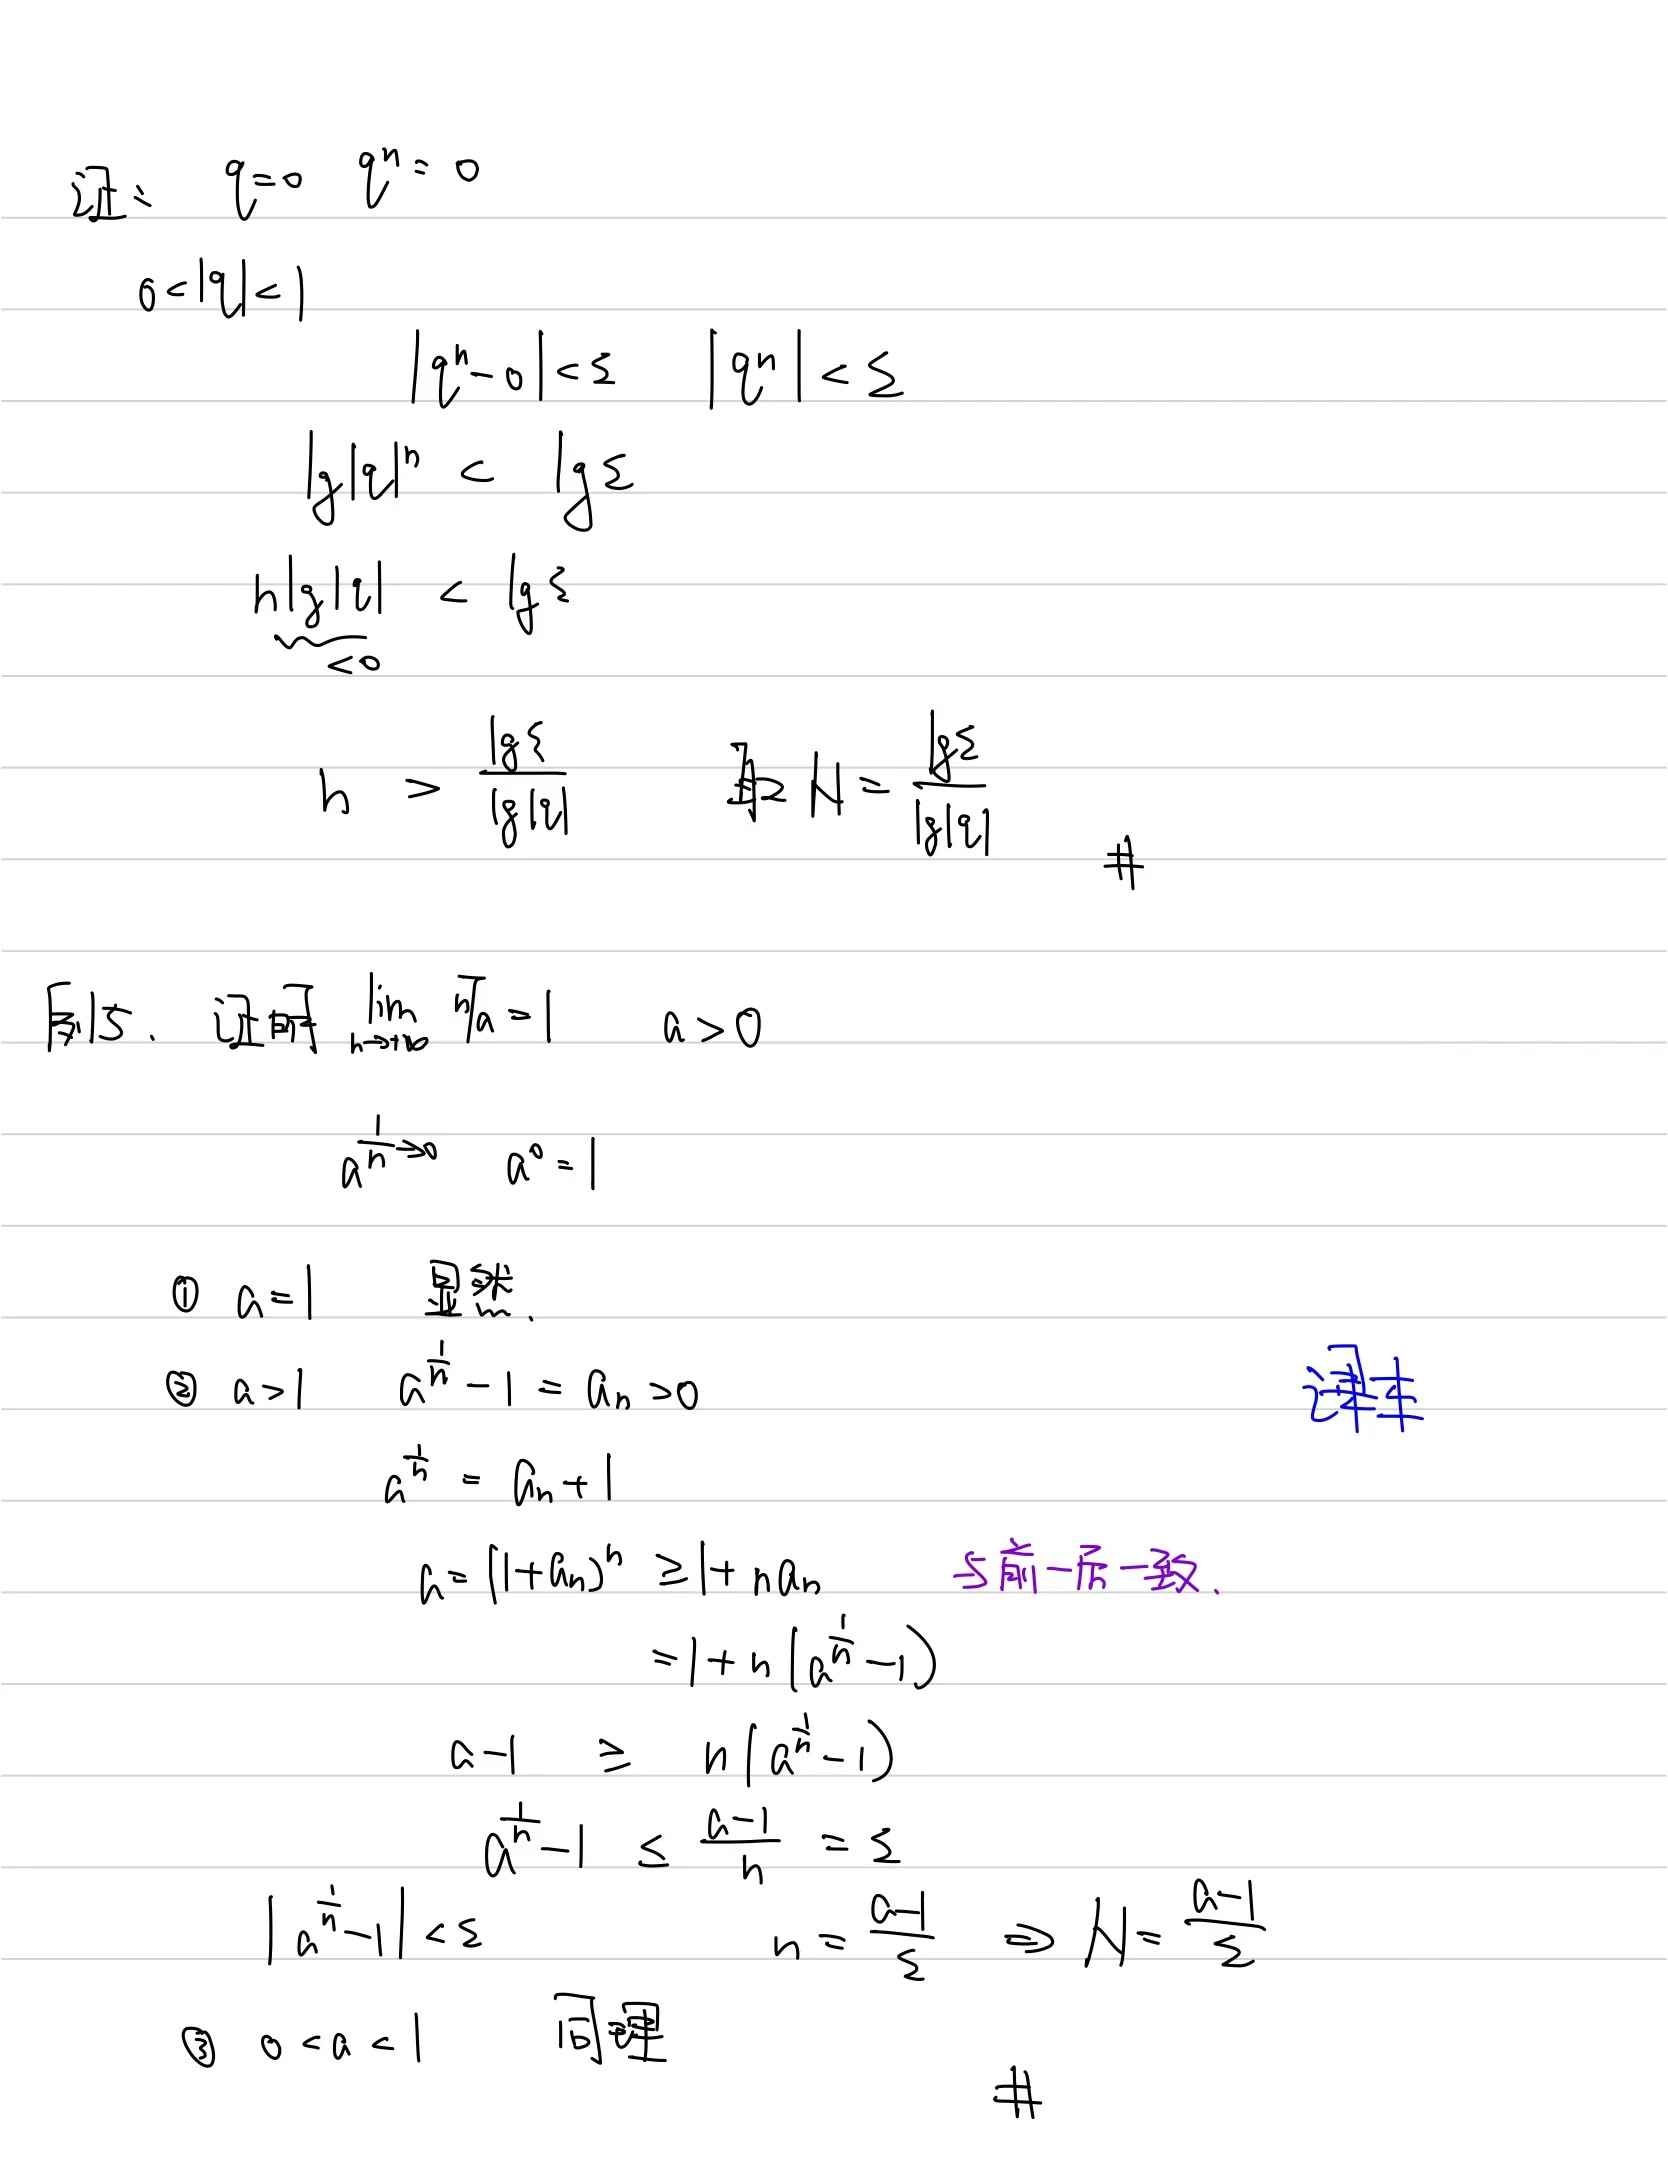 证: q=0 qⁿ=0
0<|q|<1
|qⁿ-0|<ε |qⁿ|<ε
lg|q|ⁿ < lgε
n lg|q| < lgε
<0
n > lgε/lg|q| 取 N = lgε/lg|q| #
例5. 证明 lim n→+∞ ⁿ√a = 1 a>0
a^(1/n→0) a⁰=1
① a=1 显然.
② a>1 a^(1/n) - 1 = aₙ >0
a^(1/n) = aₙ+1
a=(1+aₙ)ⁿ ≥1+naₙ 与前一后一致.
=1+n(a^(1/n)-1)
a-1 ≥ n(a^(1/n)-1)
a^(1/n)-1 ≤ (a-1)/n = ε
|a^(1/n)-1|<ε n = (a-1)/ε ⇒ N = (a-1)/ε
③ 0<a<1 同理
#